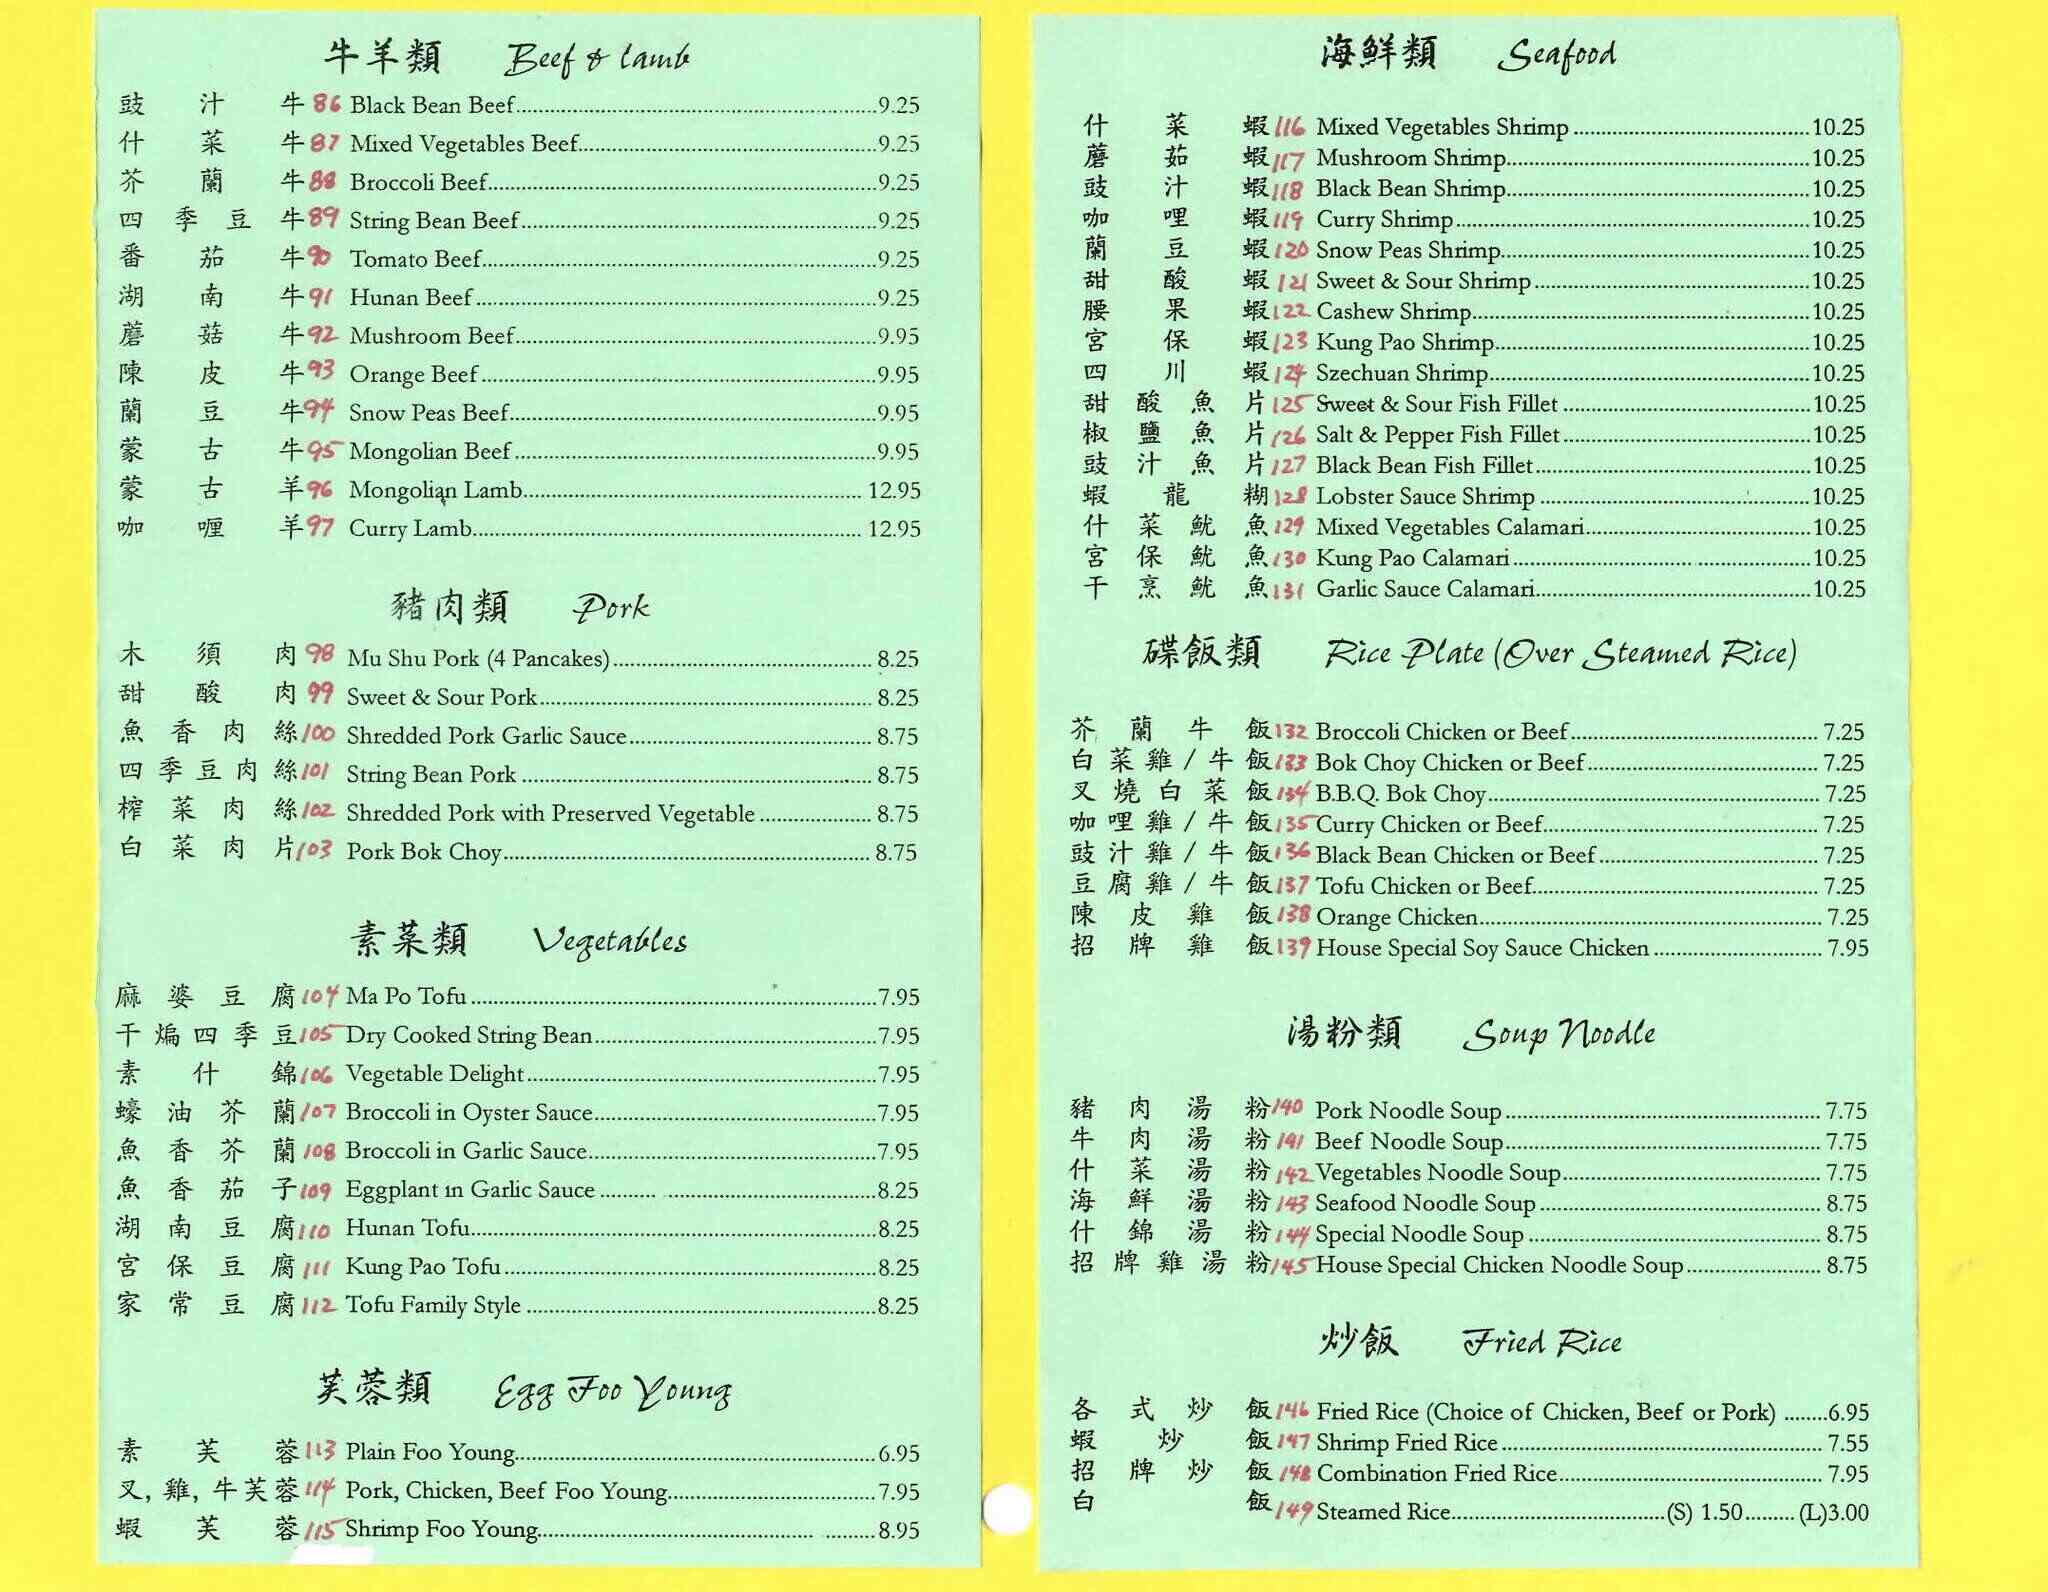 牛羊類 Beef & Lamb
豉汁牛 86 Black Bean Beef 9.25
什菜牛 87 Mixed Vegetables Beef 9.25
芥蘭牛 88 Broccoli Beef 9.25
四季豆牛 89 String Bean Beef 9.25
番茄牛 90 Tomato Beef 9.25
湖南牛 91 Hunan Beef 9.25
蘑菇牛 92 Mushroom Beef 9.95
陳皮牛 93 Orange Beef 9.95
蘭豆牛 94 Snow Peas Beef 9.95
蒙古牛 95 Mongolian Beef 9.95
蒙古羊 96 Mongolian Lamb 12.95
咖喱羊 97 Curry Lamb 12.95
豬肉類 Pork
木須肉 98 Mu Shu Pork (4 Pancakes) 8.25
甜酸肉 99 Sweet & Sour Pork 8.25
魚香肉絲 100 Shredded Pork Garlic Sauce 8.75
四季豆肉絲 101 String Bean Pork 8.75
榨菜肉絲 102 Shredded Pork with Preserved Vegetable 8.75
白菜肉片 103 Pork Bok Choy 8.75
素菜類 Vegetables
麻婆豆腐 104 Ma Po Tofu 7.95
干煸四季豆 105 Dry Cooked String Bean 7.95
素什錦 106 Vegetable Delight 7.95
蠔油芥蘭 107 Broccoli in Oyster Sauce 7.95
魚香芥蘭 108 Broccoli in Garlic Sauce 7.95
魚香茄子 109 Eggplant in Garlic Sauce 8.25
湖南豆腐 110 Hunan Tofu 8.25
宮保豆腐 111 Kung Pao Tofu 8.25
家常豆腐 112 Tofu Family Style 8.25
芙蓉類 Egg Foo Young
素芙蓉 113 Plain Foo Young 6.95
叉, 雞, 牛芙蓉 114 Pork, Chicken, Beef Foo Young 7.95
蝦芙蓉 115 Shrimp Foo Young 8.95
海鮮類 Seafood
什菜蝦 116 Mixed Vegetables Shrimp 10.25
蘑茹蝦 117 Mushroom Shrimp 10.25
豉汁蝦 118 Black Bean Shrimp 10.25
咖哩蝦 119 Curry Shrimp 10.25
蘭豆蝦 120 Snow Peas Shrimp 10.25
甜酸蝦 121 Sweet & Sour Shrimp 10.25
腰果蝦 122 Cashew Shrimp 10.25
宮保蝦 123 Kung Pao Shrimp 10.25
四川蝦 124 Szechuan Shrimp 10.25
甜酸魚片 125 Sweet & Sour Fish Fillet 10.25
椒鹽魚片 126 Salt & Pepper Fish Fillet 10.25
豉汁魚片 127 Black Bean Fish Fillet 10.25
蝦龍糊 128 Lobster Sauce Shrimp 10.25
什菜魷魚 129 Mixed Vegetables Calamari 10.25
宮保魷魚 130 Kung Pao Calamari 10.25
干烹魷魚 131 Garlic Sauce Calamari 10.25
碟飯類 Rice Plate (Over Steamed Rice)
芥蘭牛飯 132 Broccoli Chicken or Beef 7.25
白菜雞/牛飯 133 Bok Choy Chicken or Beef 7.25
叉燒白菜飯 134 B.B.Q. Bok Choy 7.25
咖哩雞/牛飯 135 Curry Chicken or Beef 7.25
豉汁雞/牛飯 136 Black Bean Chicken or Beef 7.25
豆腐雞/牛飯 137 Tofu Chicken or Beef 7.25
陳皮雞飯 138 Orange Chicken 7.25
招牌雞飯 139 House Special Soy Sauce Chicken 7.95
湯粉類 Soup Noodle
豬肉湯粉 140 Pork Noodle Soup 7.75
牛肉湯粉 141 Beef Noodle Soup 7.75
什菜湯粉 142 Vegetables Noodle Soup 7.75
海鮮湯粉 143 Seafood Noodle Soup 8.75
什錦湯粉 144 Special Noodle Soup 8.75
招牌雞湯粉 145 House Special Chicken Noodle Soup 8.75
炒飯 Fried Rice
各式炒飯 146 Fried Rice (Choice of Chicken, Beef or Pork) 6.95
蝦炒飯 147 Shrimp Fried Rice 7.55
招牌炒飯 148 Combination Fried Rice 7.95
白飯 149 Steamed Rice (S) 1.50 (L)3.00